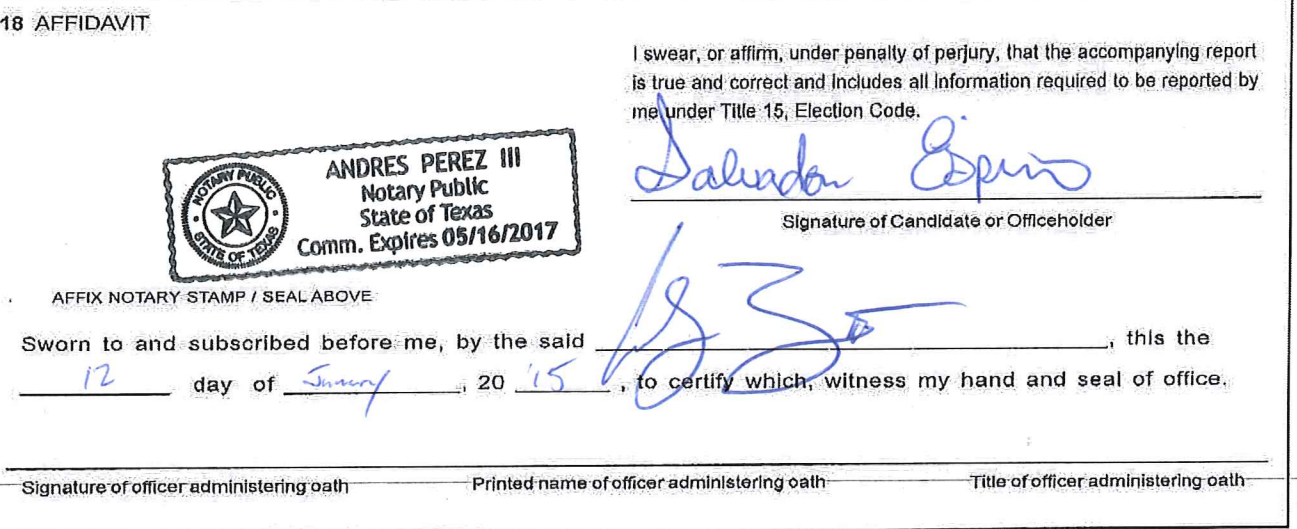 18 AFFIDAVIT
I swear, or affirm, under penalty of perjury, that the accompanying report
is true and correct and includes all information required to be reported by
me under Title 15, Election Code.
Salvador Espino
Signature of Candidate or Officeholder
NOTARY PUBLIC
STATE OF TEXAS
ANDRES PEREZ III
Notary Public
State of Texas
Comm. Expires 05/16/2017
AFFIX NOTARY STAMP / SEAL ABOVE
Sworn to and subscribed before me, by the said , this the
12 day of January, 20 15, to certify which, witness my hand and seal of office.
Signature of officer administering oath Printed name of officer administering oath Title of officer administering oath